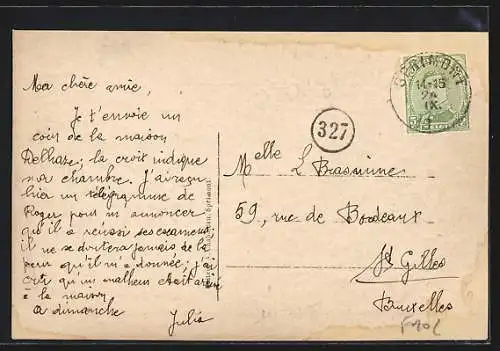 Ma chère amie,
Je t'envoie un
coin de la maison
Delhaze; la croix indique
ma chambre. J'ai reçu
hier un télégramme de
Roger pour m'annoncer
qu'il a réussi ses examens
il ne se doutera jamais de la
peur qu'il m'a donnée; j'ai
cru qu'un malheur était arrivé
à la maison
A dimanche
Julia
327
SPRIMONT
14-15
24
IX
5
Melle L Brassinne
59, rue de Bordeaux
St Gilles
Bruxelles